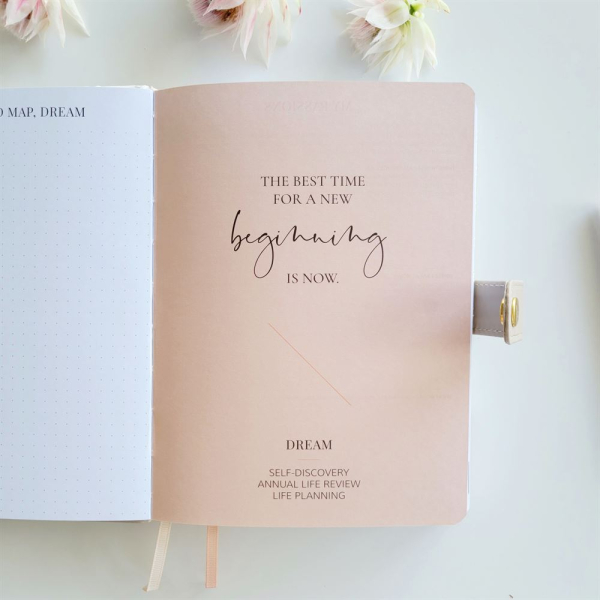 MAP, DREAM
THE BEST TIME
FOR A NEW
beginning
IS NOW.
DREAM
SELF-DISCOVERY
ANNUAL LIFE REVIEW
LIFE PLANNING